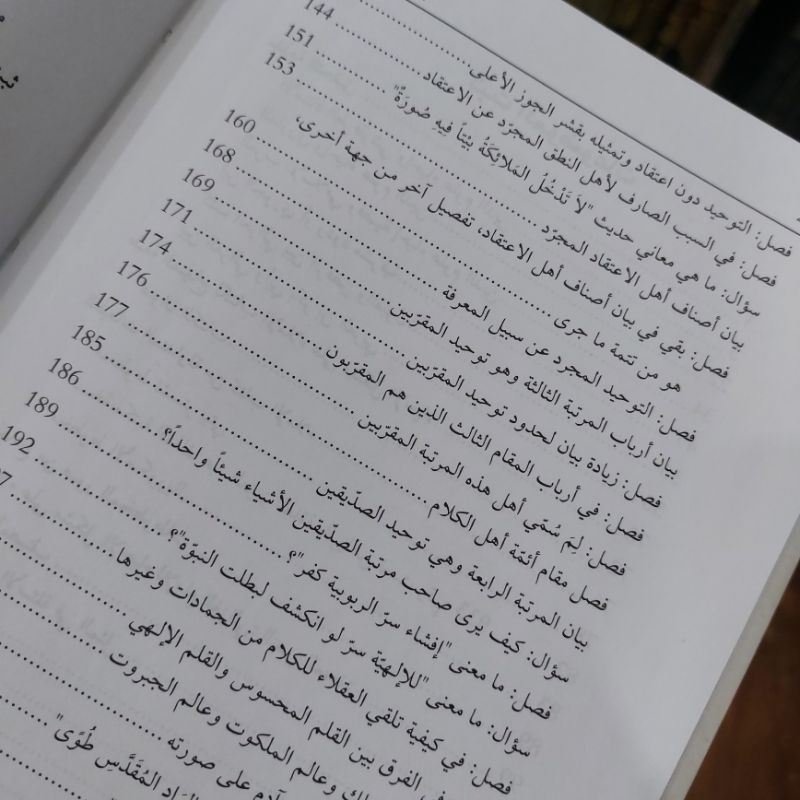 فصل: التوحيد دون اعتقاد وتمثيله بقشر الجوز الأعلى 144
فصل: في السبب الصارف لأهل النطق المجرّد عن الاعتقاد 151
سؤال: ما هي معاني حديث "لاَ تَدْخُلُ المَلاَئِكَةُ بَيْتاً فِيهِ صُورَةٌ" 153
بيان أصناف أهل الاعتقاد المجرّد 160
فصل: بقي في بيان أصناف أهل الاعتقاد، تفصيل آخر من جهة أخرى،
هو من تتمة ما جرى 168
فصل: التوحيد المجرد عن سبيل المعرفة 169
بيان أرباب المرتبة الثالثة وهو توحيد المقرّبين 171
فصل: زيادة بيان لحدود توحيد المقرّبين 174
فصل: في أرباب المقام الثالث الذين هم المقرّبون 176
فصل: لِمَ سُمّي أهل هذه المرتبة المقرّبين 177
فصل مقام أئمّة أهل الكلام 185
بيان المرتبة الرابعة وهي توحيد الصدّيقين 186
سؤال: كيف يرى صاحب مرتبة الصدّيقين الأشياء شيئاً واحداً؟ 189
فصل: ما معنى "إفشاء سرّ الربوبية كفر"؟ 192
سؤال: ما معنى "للإلهيّة سرّ لو انكشف لبطلت النبوّة"؟
فصل: في كيفية تلقي العقلاء للكلام من الجمادات وغيرها
في الفرق بين القلم المحسوس والقلم الإلهي
وعالم الملكوت وعالم الجبروت
آدم على صورته
المُقَدَّسِ طُوًى"